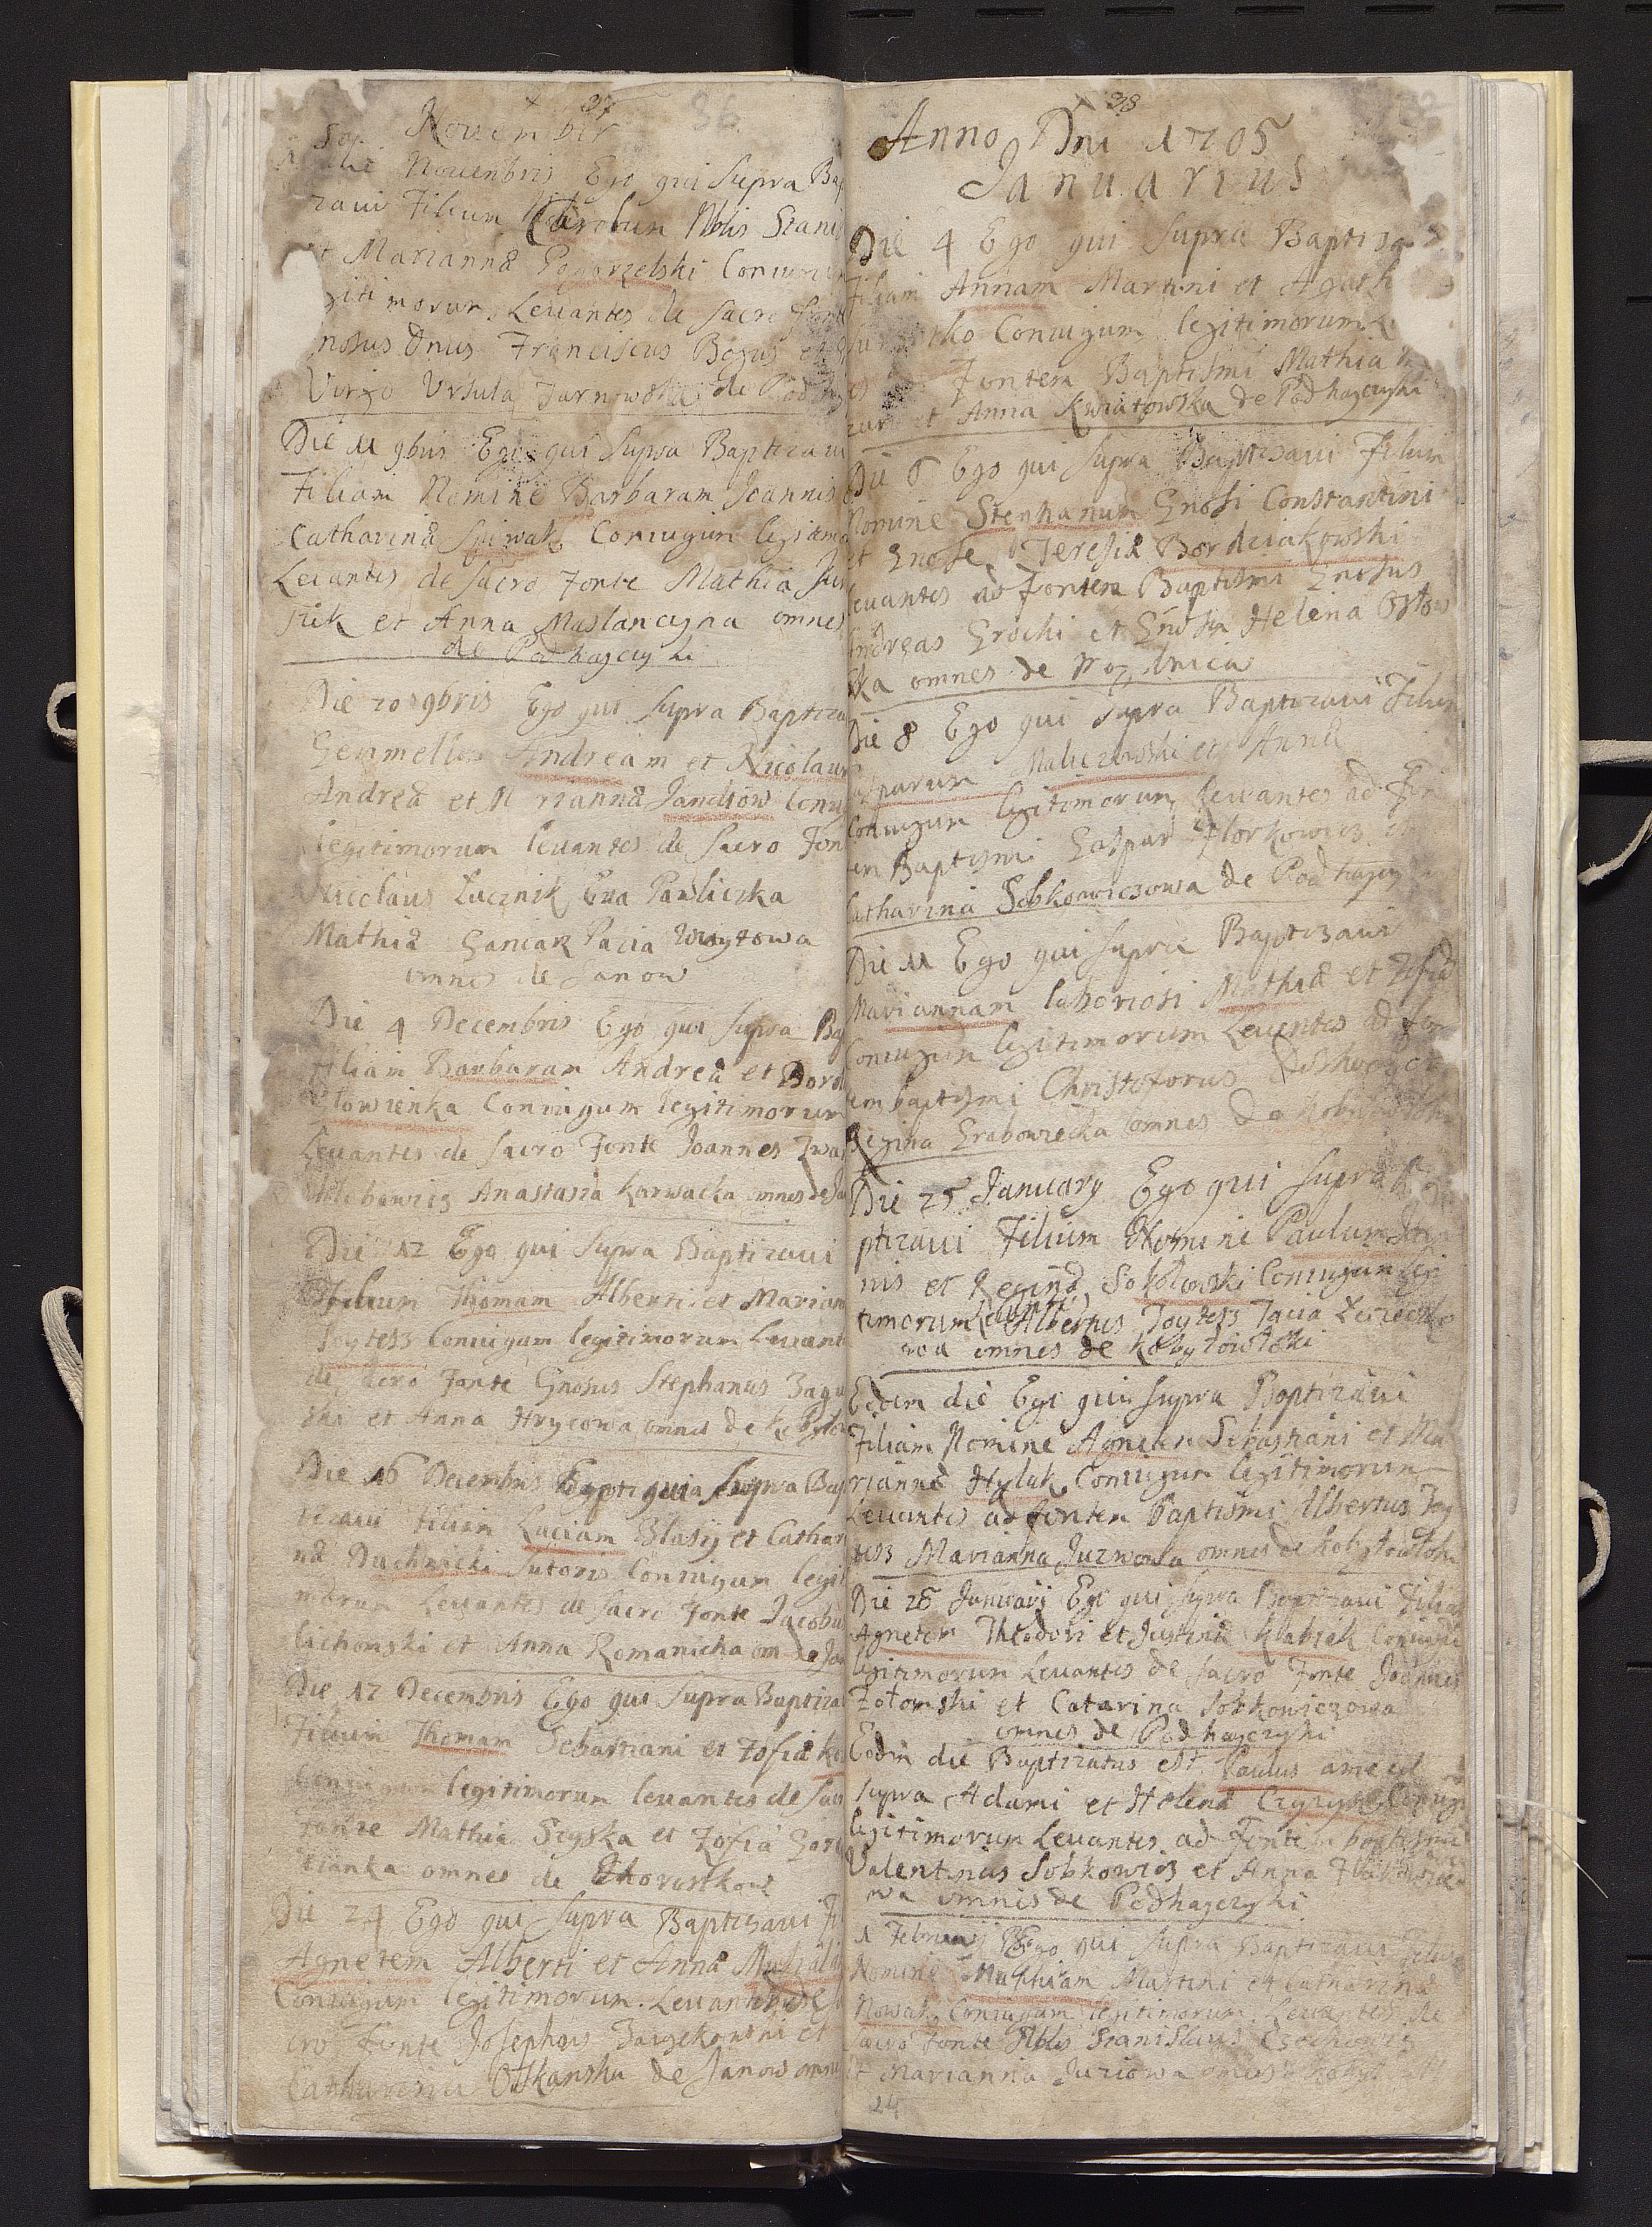 37
36
November
Novenbris Ego qui supra Bap
zaui Filium Carolum Nblis Stanis
et Marianna Pogorzelski Conium
gitimorum Leuantes de sacro fonte
nosus Dnus Franciscus Bogus et
Virgo Vrsula Tarnowska de Podhay
Die 11 9bris Ego qui supra Baptizaui
Filiam Nomine Barbaram Joannis
Catharina Spiwak Coniugum legitimo
Leuantes de sacro Fonte Mathia
et Anna Maslanczyna omnes
de Podhayczyki
Die 20 9bris Ego qui supra Baptiza
Gemmellos Andream et Nicolaum
Andrea et M rianna Jandzow Coniu
legitimorum leuantes de sacro Fon
Nicolaus Lucznik Ewa Pawliczka
Mathia Ganiak Pacia Woytowa
omnes de Janow
Die 4 Decembris Ego qui supra Bap
filiam Barbaram Andrea et Doro
Glowienka Coniugum legitimorum
Leuantes de sacro Fonte Joannes Iwas
Anastasia Karwacka omnes de Ja
Die 12 Ego qui supra Baptizaui
Filium Thomam Alberti et Marian
Joytesz Coniugum legitimorum Leuant
de sacro Fonte Gnosus Stephanus Zagu
ski et Anna Hrycowa omnes de Kobylow
Die 16 Decembris Ego qui supra Bap
tizaui filiam Luciam Blasij et Cathar
na Duchnicki sutoris Coniugum legit
morum Leuantes de sacro Fonte Jacobus
lichowski et Anna Romanicha om de Jan
Die 17 Decembris Ego qui supra Baptiza
Filium Thomam Sebastiani et Zofia Ko
Coniugum legitimorum leuantes de sac
fonte Mathia Szyska et Zofia
omnes de Chorostkow
Die 24 Ego qui supra Baptizaui Fi
Agnetem Alberti et Anna
Coniugum legitimorum Leuantes de sa
cro Fonte Josephus et
Catharina Otkanska de Janow omnes
38
Anno Dni 1705
Januarius
Die 4 Ego qui supra Baptiza
Filiam Annam Martini et Agath
Coniugum legitimorum Le
Fontem Baptismi Mathia
zur et Anna Kwiatowska de Podhayczyki
Die 6 Ego qui supra Baptizaui Filium
Nomine Stephanum Gnosi Constantini
et Gnose Teresia Bordziakowski
Leuantes ad Fontem Baptismi Gnosus
Andreas Grochi et Gnosa Helena Ostow
ska omnes de Wozlnica
Die 8 Ego qui supra Baptizaui Filium
Gasparum Malczowski et Anna
Coniugum legitimorum leuantes ad Fon
tem Baptismi Gaspar Florkowicz et
Catharina Sobkowiczowa de Podhayczyki
Die 11 Ego qui supra Baptizaui
Mariannam laboriosi Mathia et Zofia
Coniugum legitimorum Leuantes ad fon
tem baptismi Christoforus
Regina Grabowiecka omnes de
Die 25 January Ego qui supra Ba
ptizaui Filium Nomine Paulum Joa
nis et Regina Sokolowski Coniugum legi
timorum Leuantes Albertus Joytesz Pacia
wa omnes de Kobylowloki
Eodem die Ego qui supra Baptizaui
Filiam Nomine Agnetem Sebastiani et Ma
rianna Hyluk Coniugum legitimorum
Leuantes ad fontem Baptismi Albertus Joy
tesz Marianna Juzwowa omnes de Kobylowloki
Die 26 Januarij Ego qui supra Baptizaui filiam
Agnetem Theodori et Justina Kabiak Coniugum
legitimorum Leuantes de sacro Fonte Joannes
Zotowski et Catarina Sobkowiczowa
omnes de Podhayczyki
Eodem die Baptizatus est Paulus ame ut
supra Adami et Helena Coniugum
legitimorum Leuantes ad Fontem baptismi
Valentinus Sobkowicz et Anna
wa omnes de Podhayczyki
1 February Ego qui supra Baptizaui Filium
Nomine Mathiam Martini et Catharina
Nowak Coniugum legitimorum Leuantes de
sacro fonte Nblis Stanislaus
et Marianna Juziowa omnes
24